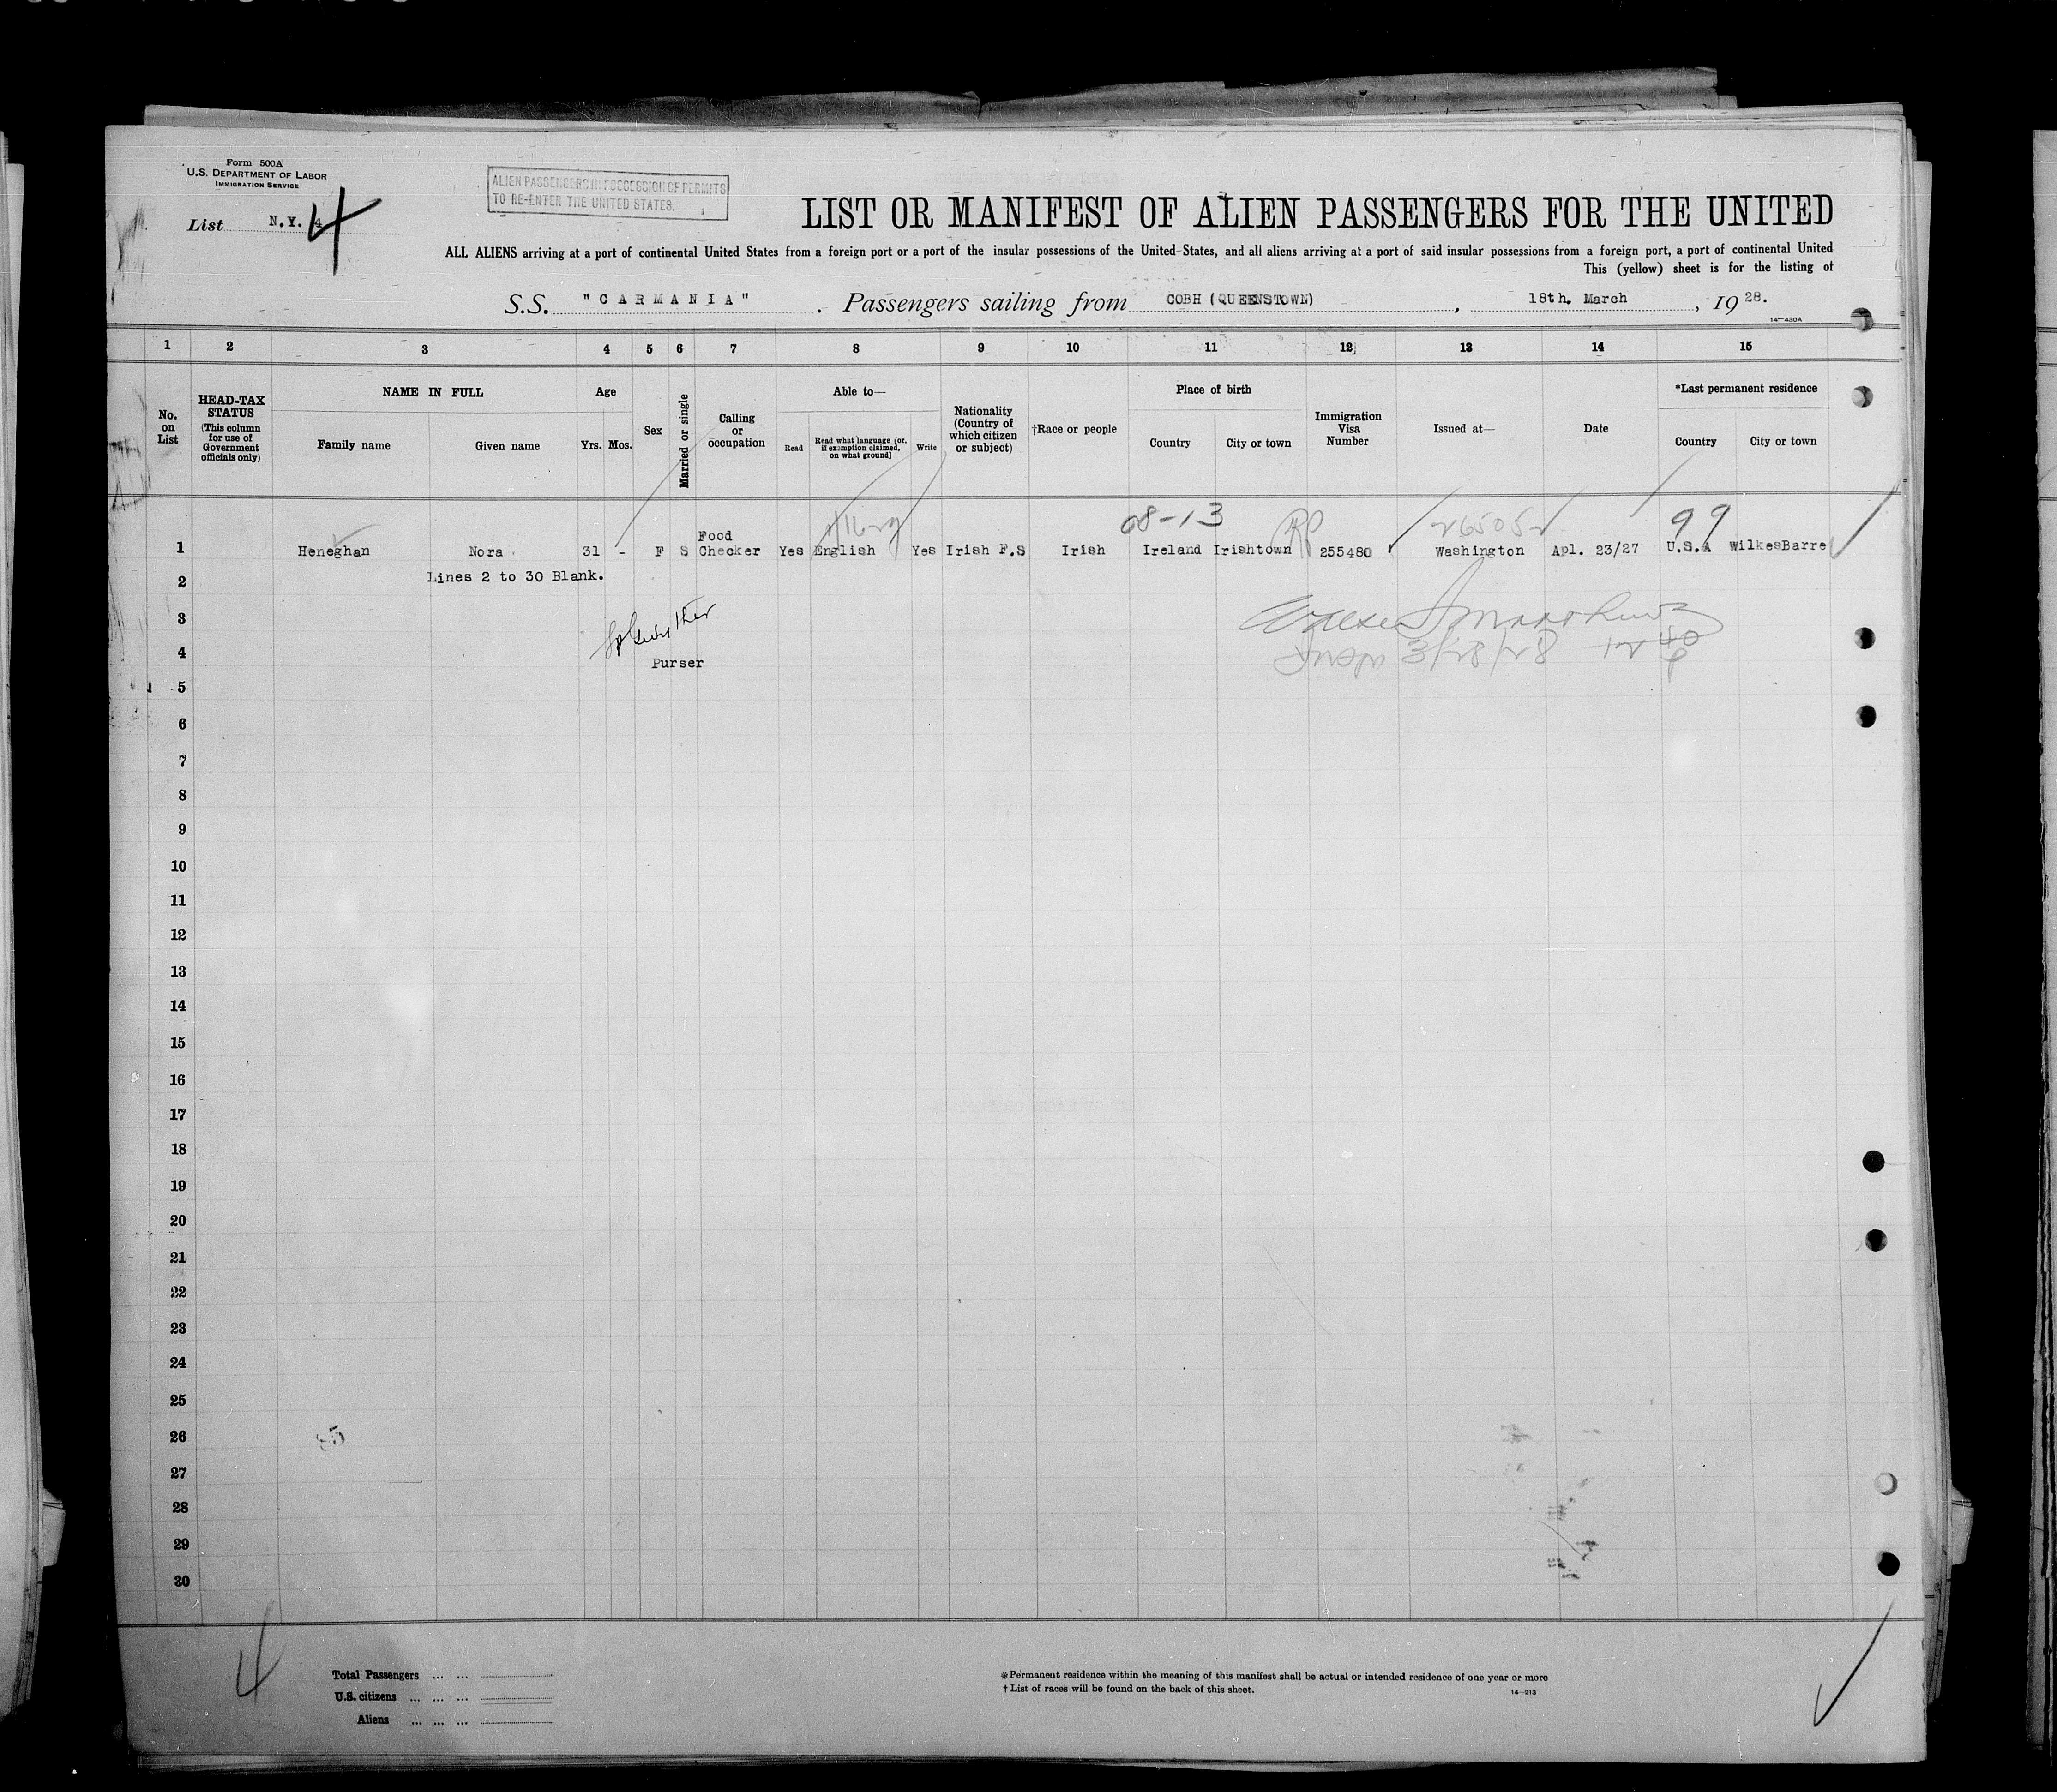 Form 500A
U.S. DEPARTMENT OF LABOR
IMMIGRATION SERVICE
List N.Y. 4 4
ALIEN PASSENGERS IN POSSESSION OF PERMITS
TO RE-ENTER THE UNITED STATES.
LIST OR MANIFEST OF ALIEN PASSENGERS FOR THE UNITED
ALL ALIENS arriving at a port of continental United States from a foreign port or a port of the insular possessions of the United States, and all aliens arriving at a port of said insular possessions from a foreign port, a port of continental United
This (yellow) sheet is for the listing of
S.S. "CARMANIA". Passengers sailing from COBH (QUEENSTOWN), 18th. March, 1928.
14—430A
1 2 3 4 5 6 7 8 9 10 11 12 13 14 15
No. on List
HEAD-TAX STATUS (This column for use of Government officials only)
NAME IN FULL
Family name Given name
Age
Yrs. Mos.
Sex
Married or single
Calling or occupation
Able to—
Read Read what language [or, if exemption claimed, on what ground] Write
Nationality (Country of which citizen or subject)
†Race or people
Place of birth
Country City or town
Immigration Visa Number
Issued at—
Date
*Last permanent residence
Country City or town
08-13 RP 99
1 Heneghan Nora 31 - F S Food Checker Yes English Yes Irish F.S Irish Ireland Irishtown 255480 Washington Apl. 23/27 U.S.A WilkesBarre
Lines 2 to 30 Blank.
2
3
4
Purser
5
6
7
8
9
10
11
12
13
14
15
16
17
18
19
20
21
22
23
24
25
26
27
28
29
30
Total Passengers ... ...
U.S. citizens ... ... ...
Aliens ... ... ...
*Permanent residence within the meaning of this manifest shall be actual or intended residence of one year or more
† List of races will be found on the back of this sheet.
14—213